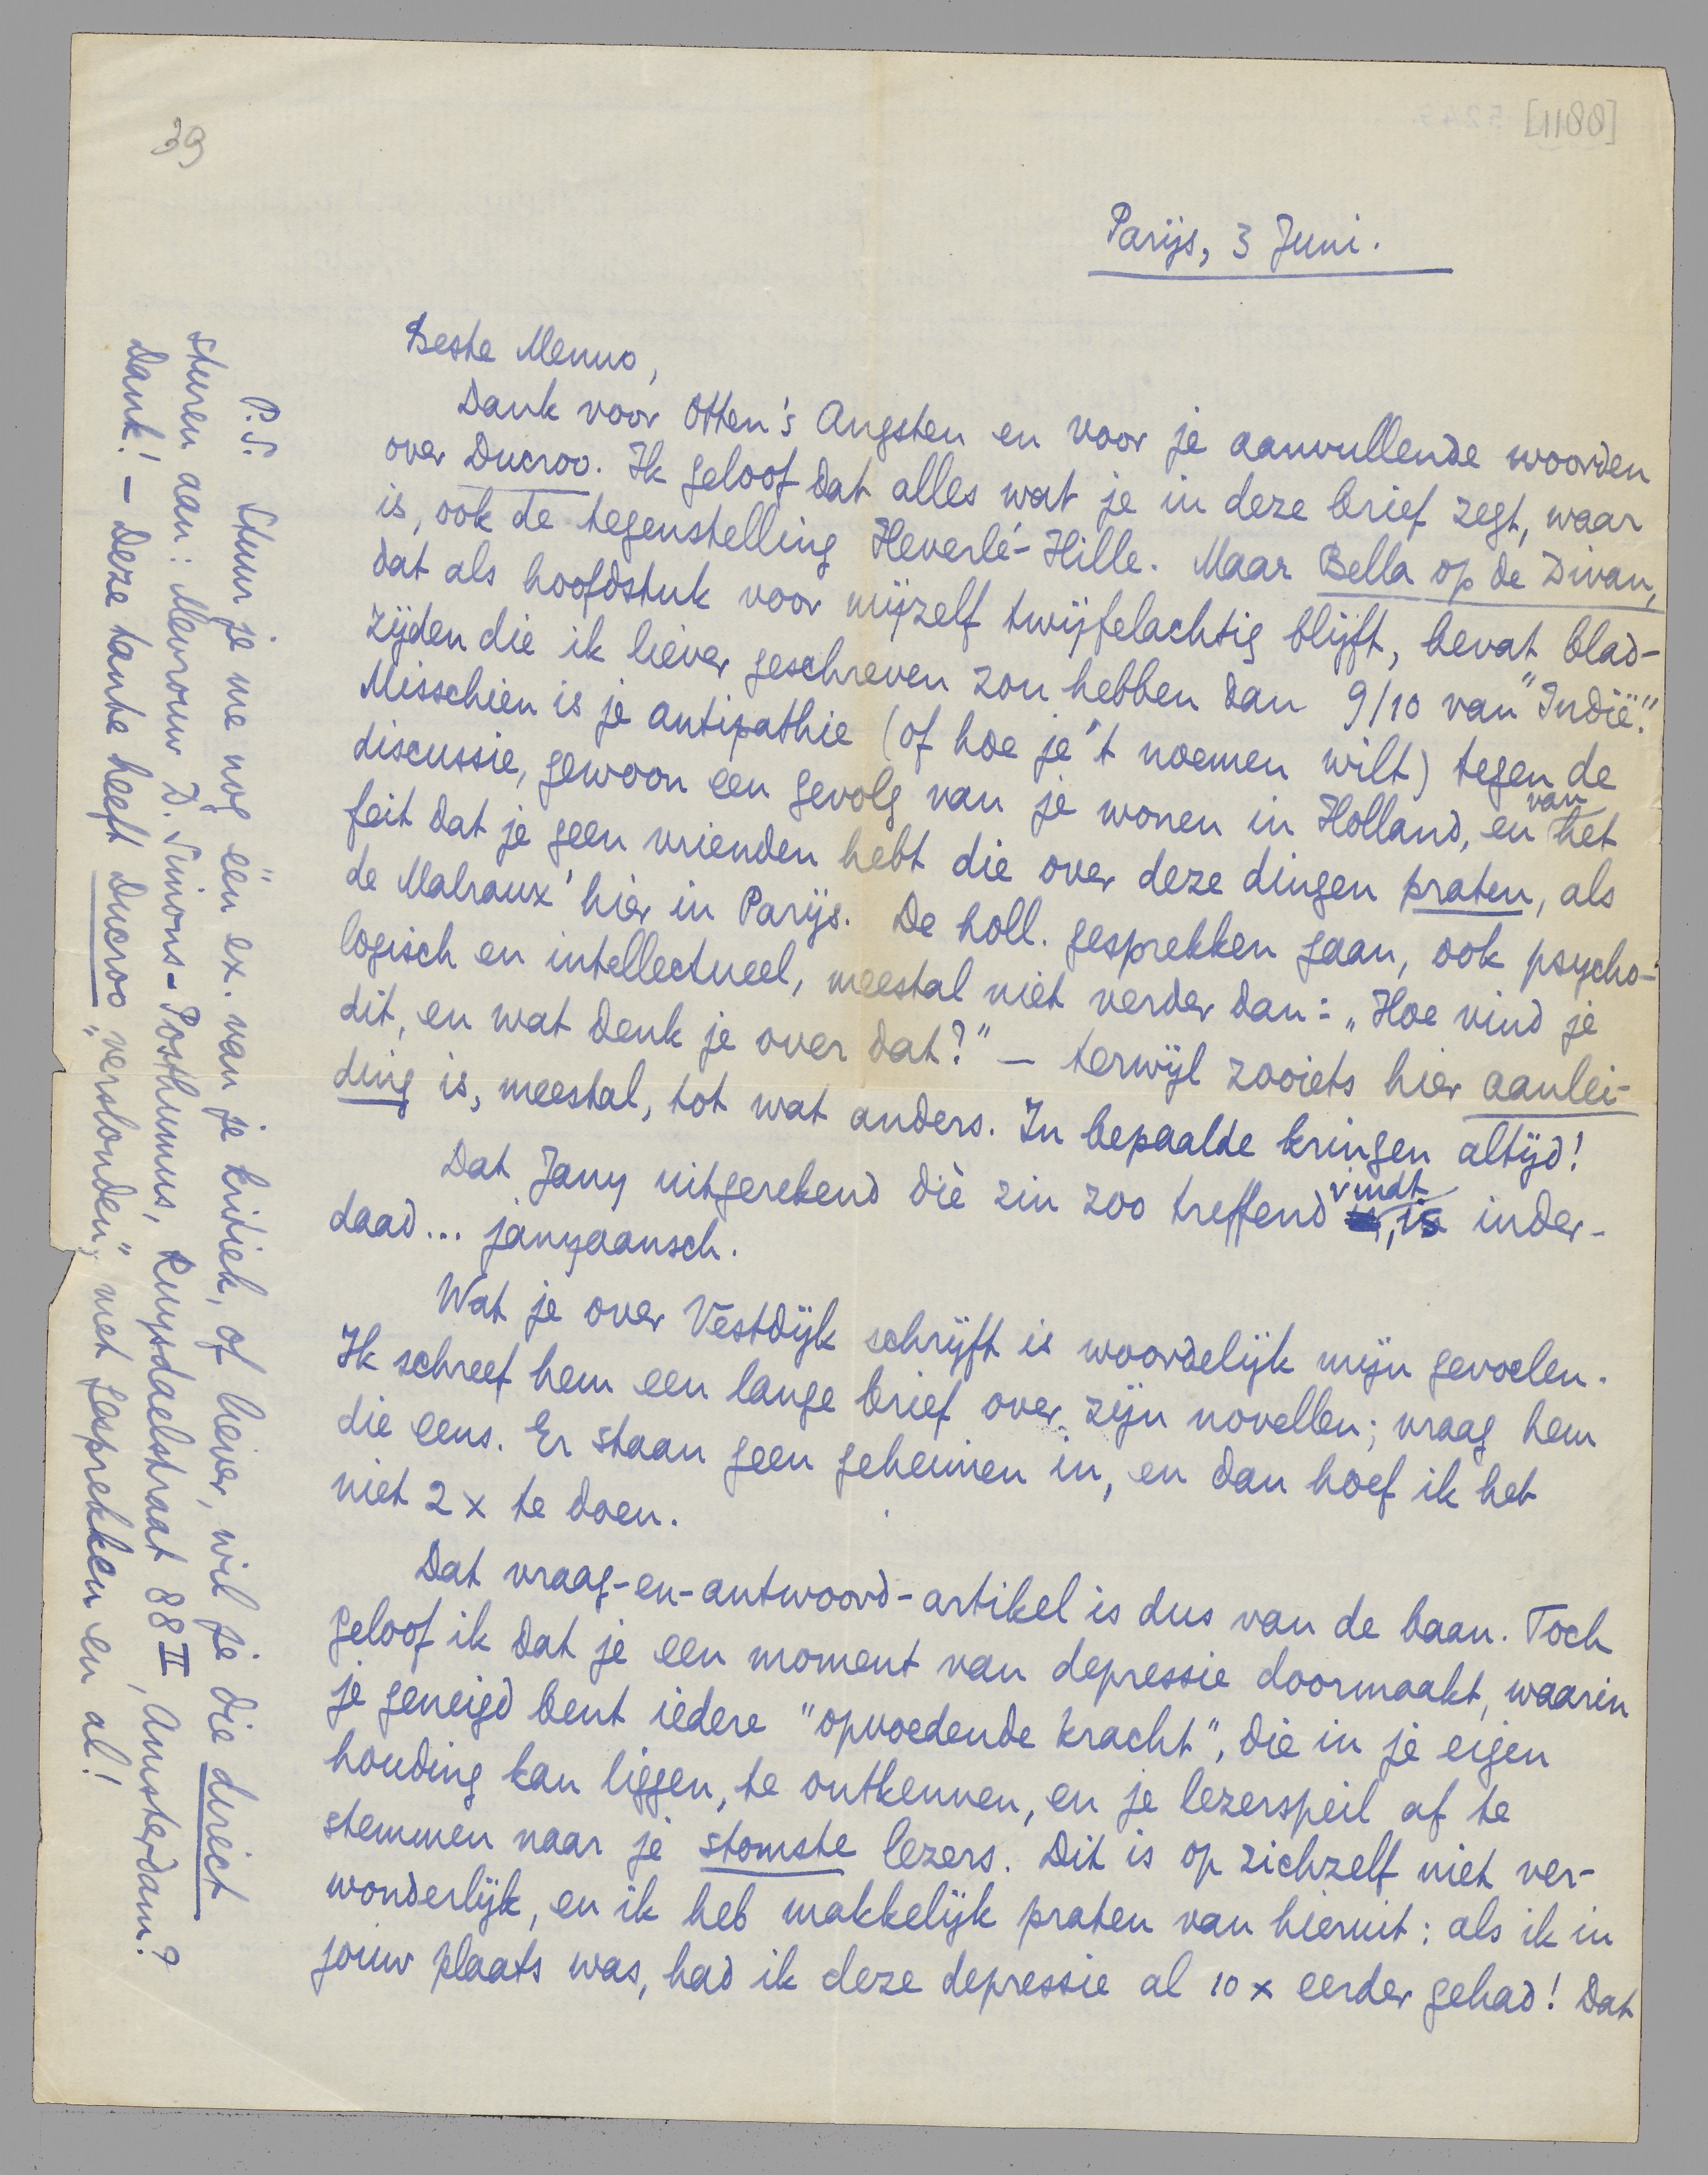 39
[1188]
Parijs, 3 Juni.
Beste Menno,
Dank voor Otten's Angsten en voor je aanvullende woorden
over Ducroo. Ik geloof dat alles wat je in deze brief zegt, waar
is, ook de tegenstelling Heverlé-Hille. Maar Bella op de Divan,
dat als hoofdstuk voor mijzelf twijfelachtig blijft, bevat blad-
zijden die ik liever geschreven zou hebben dan 9/10 van "Indië".
Misschien is je antipathie (of hoe je 't noemen wilt) tegen de
discussie, gewoon een gevolg van je wonen in Holland, en van het
feit dat je geen vrienden hebt die over deze dingen praten, als
de Malraux' hier in Parijs. De holl. gesprekken gaan, ook psycho-
logisch en intellectueel, meestal niet verder dan: „Hoe vind je
dit, en wat denk je over dat?" — terwijl zooiets hier aanlei-
ding is, meestal, tot wat anders. In bepaalde kringen altijd!
Dat Jany uitgerekend diè zin zoo treffend vindt, is inder-
daad... janyaansch.
Wat je over Vestdijk schrijft is woordelijk mijn gevoelen.
Ik schreef hem een lange brief over zijn novellen; vraag hem
die eens. Er staan geen geheimen in, en dan hoef ik het
niet 2 x te doen.
Dat vraag-en-antwoord-artikel is dus van de baan. Toch
geloof ik dat je een moment van depressie doormaakt, waarin
je geneigd bent iedere "opvoedende kracht", die in je eigen
houding kan liggen, te ontkennen, en je lezerspeil af te
stemmen naar je stomste lezers. Dit is op zichzelf niet ver-
wonderlijk, en ik heb makkelijk praten van hieruit: als ik in
jouw plaats was, had ik deze depressie al 10 x eerder gehad! Dat
P.S. Stuur je me nog één ex. van je kritiek, of liever, wil je die direct
sturen aan: Mevrouw D. Simons-Posthumus, Ruysdaelstraat 88 II, Amsterdam?
Dank! — Deze tante heeft Ducroo „verslonden", met gesprekken en al!